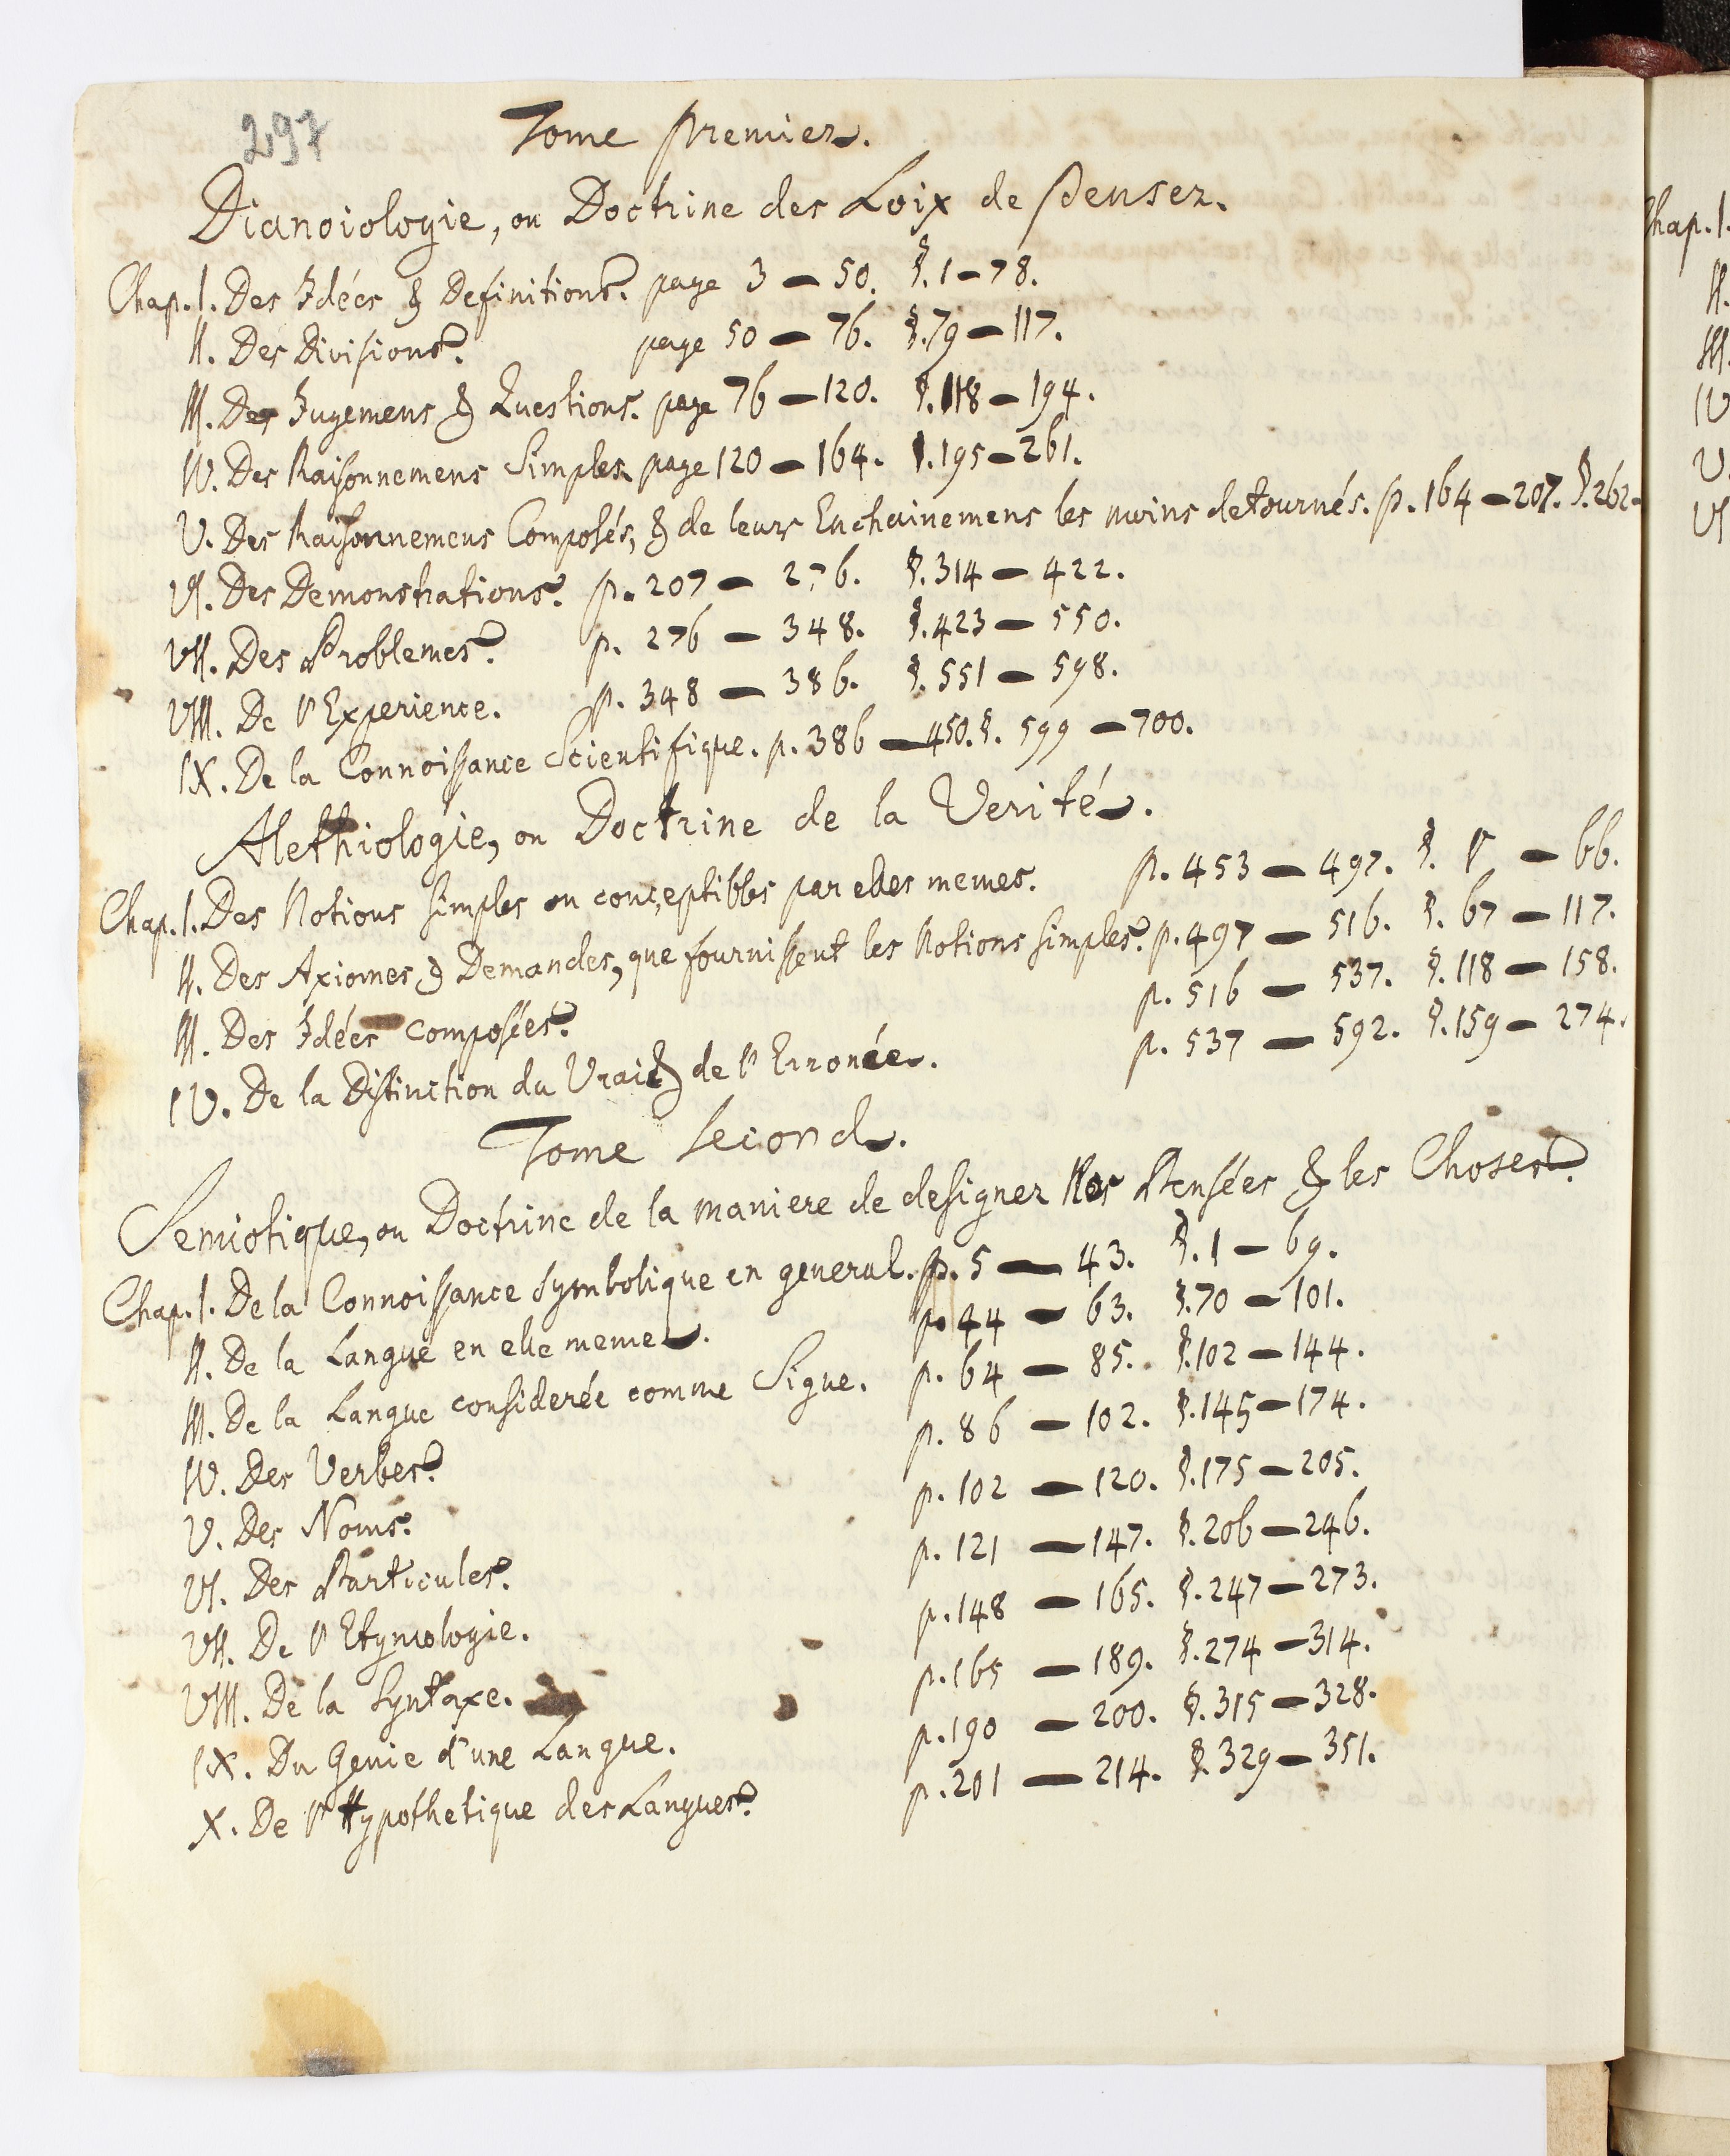 297
Tome premier.
Dianoiologie, ou Doctrine des Loix de penser.
Chap. I. Des Idées & Definitions. page 3 — 50. §. 1 — 78.
II. Des Divisions. page 50 — 76. §. 79 — 117.
III. Des Jugemens & Questions. page 76 — 120. §. 118 — 194.
IV. Des Raisonnemens Simples. page 120 — 164. §. 195 — 261.
V. Des Raisonnemens Composés, & de leurs Enchainemens les moins detournés. p. 164 — 207. §. 262 -
VI. Des Demonstrations. p. 207 — 276. §. 314 — 422.
VII. Des Problemes. p. 276 — 348. §. 423 — 550.
VIII. De l'Experience. p. 348 — 386. §. 551 — 598.
IX. De la Connoissance Scientifique. p. 386 — 450. §. 599 — 700.
Alethiologie, ou Doctrine de la Verité.
Chap. I. Des Notions simples ou conceptibles par elles memes. p. 453 — 497. §. 1 — 66.
II. Des Axiomes & Demandes, que fournissent les Notions simples. p. 497 — 516. §. 67 — 117.
III. Des Idées composées. p. 516 — 537. §. 118 — 158.
IV. De la Distinction du Vrai & de l'Erronée. p. 537 — 592. §. 159 — 274.
Tome second.
Semiotique, ou Doctrine de la maniere de designer Nos Pensées & les Choses.
Chap. I. De la Connoissance symbolique en general. p. 5 — 43. §. 1 — 69.
II. De la Langue en elle meme. p. 44 — 63. §. 70 — 101.
III. De la Langue considerée comme Signe. p. 64 — 85. §. 102 — 144.
IV. Des Verbes. p. 86 — 102. §. 145 — 174.
V. Des Noms. p. 102 — 120. §. 175 — 205.
VI. Des Particules. p. 121 — 147. §. 206 — 246.
VII. De l'Etymologie. p. 148 — 165. §. 247 — 273.
VIII. De la Syntaxe. p. 165 — 189. §. 274 — 314.
IX. Du Genie d'une Langue. p. 190 — 200. §. 315 — 328.
X. De l'Hypothetique des Langues. p. 201 — 214. §. 329 — 351.
Chap. I.
II.
III.
IV
V.
VI